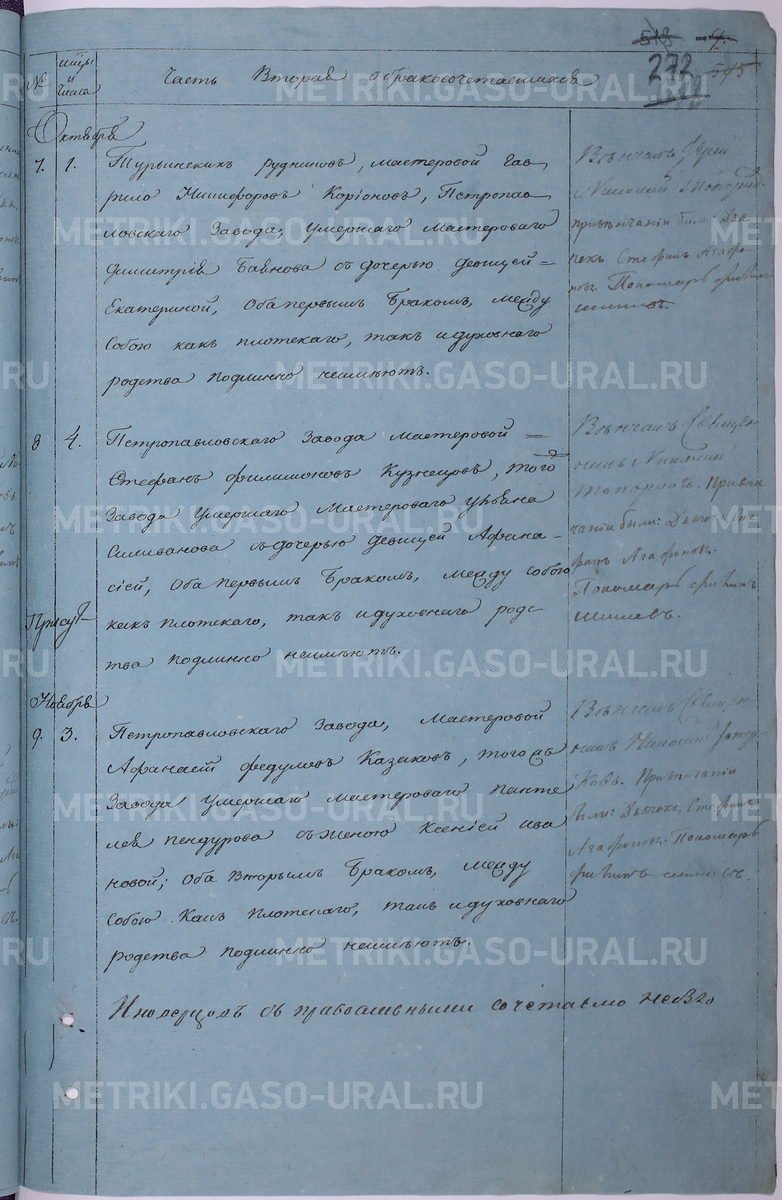 518
272 545
№ мцы и числа
Часть Вторая о бракосочетавшихся
Октябрь
7. 1. Турьинскихъ рудниковъ, мастеровой Гав-
рило Никифоровъ Коріоновъ, Петропав-
ловскаго Завода, умершаго мастероваго
Димитрія Бавнова съ дочерью девицей =
Екатериной, Оба первымъ Бракомъ, между
Собою какъ плотскаго, такъ и духовнаго
родства подлинно неимѣютъ.
Вѣнчалъ
Николай
привѣнчаніи были:
Стефанъ Агафо
новъ. Пономарь
Шишевъ.
8 4. Петропавловскаго Завода мастеровой =
Стефанъ Филимоновъ Кузнецовъ, того
Завода умершаго Мастероваго Ульяна
Силиванова съ дочерью девицей Афана-
сіей, Оба первымъ Бракомъ, между собою
какъ плотскаго, такъ и духовнаго родс-
тва подлинно неимѣютъ.
Вѣнчалъ Священ
никъ Николай
Топорковъ. Привѣн
чаніи были: Дьячокъ Сте
фанъ Агафоновъ.
Пономарь Филипъ
Шишевъ.
Ноябрь
9. 3. Петропавловскаго Завода, Мастеровой
Афанасій Федуловъ Казаковъ, того
Завода умершаго мастероваго Панте
лея Пендурова съ Женою Ксеніей Ива
новой; Оба Вторымъ Бракомъ, между
Собою Какъ плотскаго, такъ и духовнаго
родства подлинно неимѣютъ.
Вѣнчалъ Священ
никъ Николай Топор
ковъ. При
были: Дьячокъ, Стефанъ
Агафоновъ. Пономарь
Филипъ Шишевъ.
Иноверцовъ съ православными сочетаемо не было
METRIKI.GASO-URAL.RU